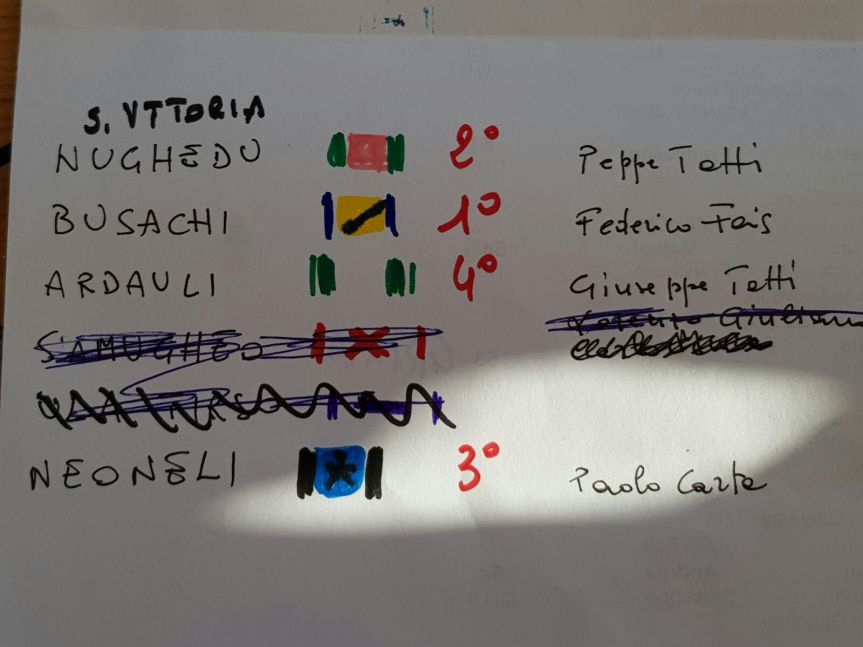 S. VTTORIA
NUGHEDU 2° Peppe Tatti
BUSACHI 1° Federico Fais
ARDAULI 4° Giuseppe Tatti
SAMUGHEO Giuliano
NEONELI 3° Paolo Carta